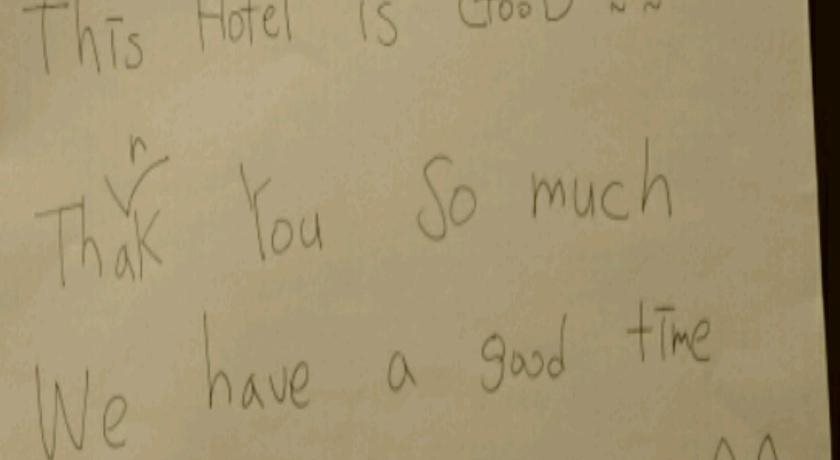 This Hotel is GooD ~~
Thank You So much
We have a good time
^^